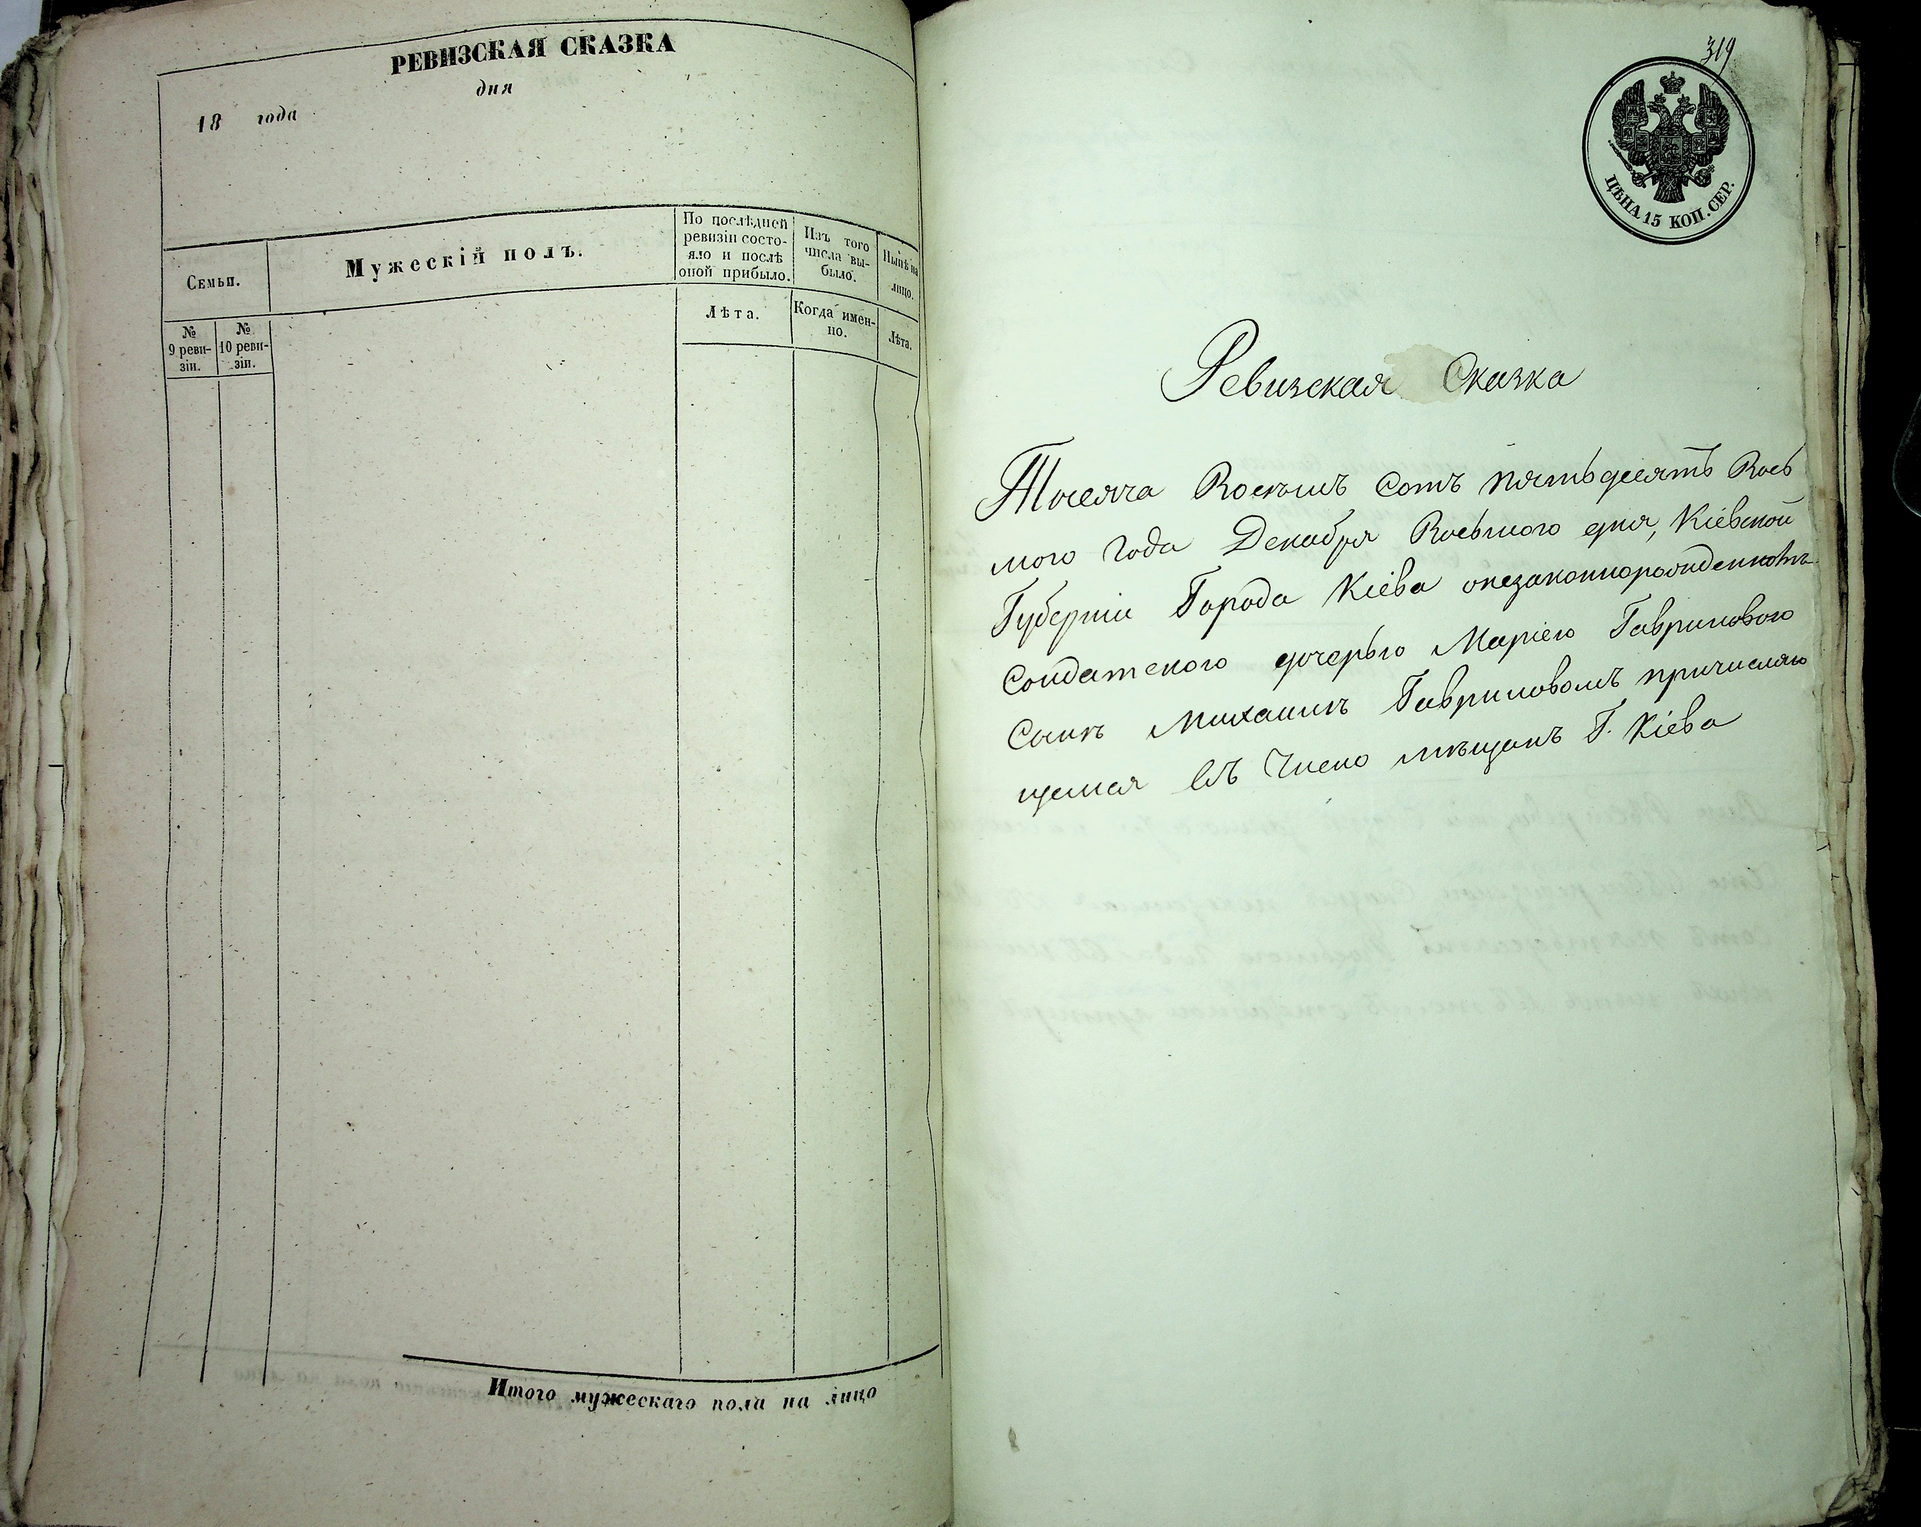 РЕВИЗСКАЯ СКАЗКА
дня
18 года
Семьи.
Мужескій полъ.
По послѣдней
ревизіи состо-
яло и послѣ
оной прибыло.
Изъ того
числа вы-
было.
Нынѣ на
лицо.
№
9 реви-
зіи.
№
10 реви-
зіи.
Лѣта.
Когда имен-
но.
Лѣта.
Итого мужескаго пола на лицо
319
ЦѢНА 15 КОП. СЕР.
Ревизская Сказка
Тысяча Восемь Сотъ пятьдесятъ Вось
мого Года Декабря Восьмого дня, Кіевской
Губерніи Города Кіева онезаконнорожденномъ
Солдатскою дочерью Маріею Гавриловою
Сынѣ Михаилѣ Гавриловомъ причисляю
щемся въ Число мѣщанъ Г. Кіева